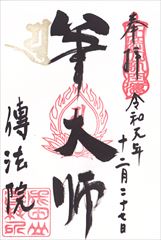 奉拝
令和元年
十二月二十七日
大師
傳法院